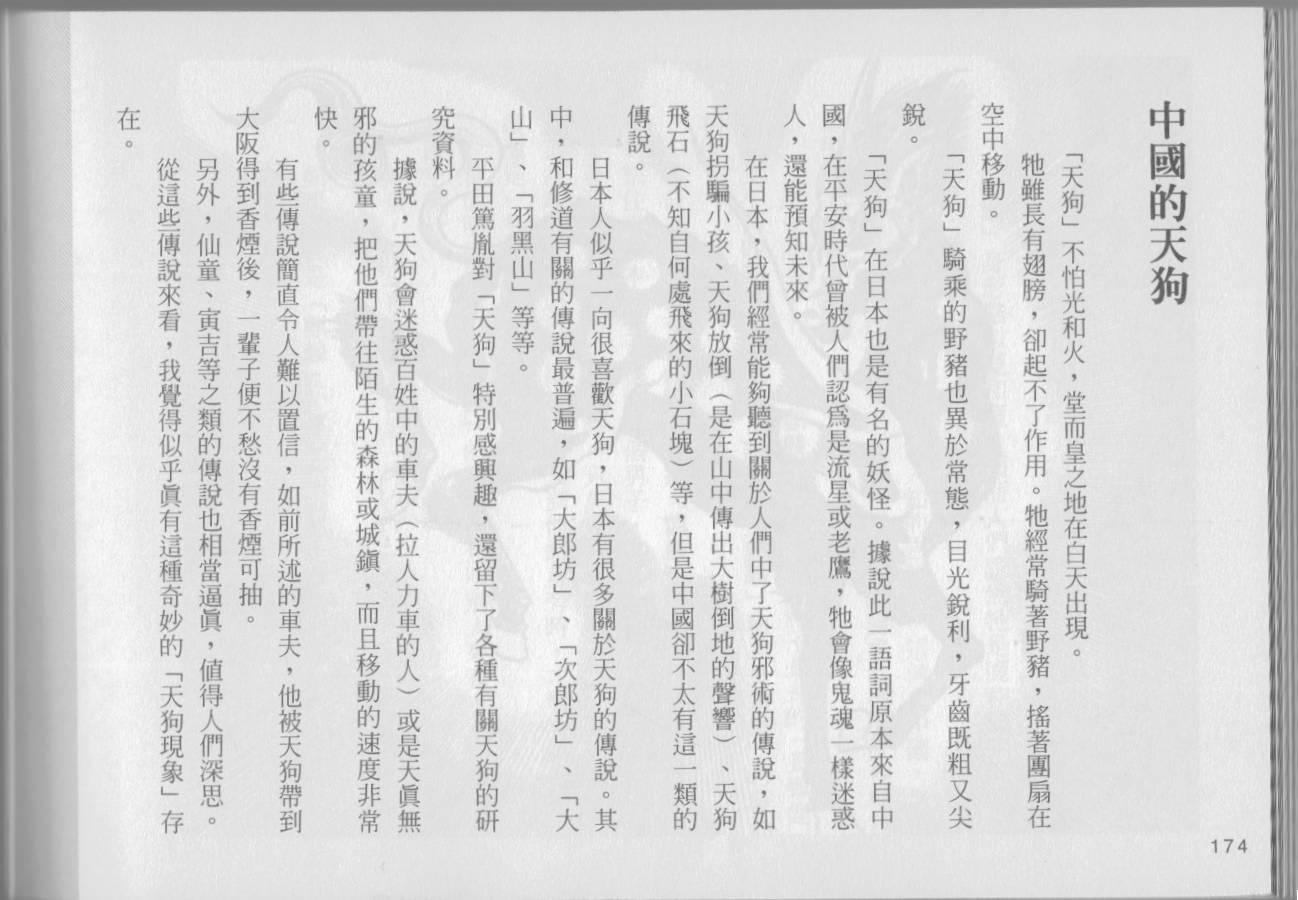 中國的天狗
「天狗」不怕光和火，堂而皇之地在白天出現。
牠雖長有翅膀，卻起不了作用。牠經常騎著野豬，搖著團扇在
空中移動。
「天狗」騎乘的野豬也異於常態，目光銳利，牙齒既粗又尖
銳。
「天狗」在日本也是有名的妖怪。據說此一語詞原本來自中
國，在平安時代曾被人們認爲是流星或老鷹，牠會像鬼魂一樣迷惑
人，還能預知未來。
在日本，我們經常能夠聽到關於人們中了天狗邪術的傳說，如
天狗拐騙小孩、天狗放倒（是在山中傳出大樹倒地的聲響）、天狗
飛石（不知自何處飛來的小石塊）等，但是中國卻不太有這一類的
傳說。
日本人似乎一向很喜歡天狗，日本有很多關於天狗的傳說。其
中，和修道有關的傳說最普遍，如「大郎坊」、「次郎坊」、「大
山」、「羽黑山」等等。
平田篤胤對「天狗」特別感興趣，還留下了各種有關天狗的研
究資料。
據說，天狗會迷惑百姓中的車夫（拉人力車的人）或是天眞無
邪的孩童，把他們帶往陌生的森林或城鎭，而且移動的速度非常
快。
有些傳說簡直令人難以置信，如前所述的車夫，他被天狗帶到
大阪得到香煙後，一輩子便不愁沒有香煙可抽。
另外，仙童、寅吉等之類的傳說也相當逼眞，値得人們深思。
從這些傳說來看，我覺得似乎眞有這種奇妙的「天狗現象」存
在。
174